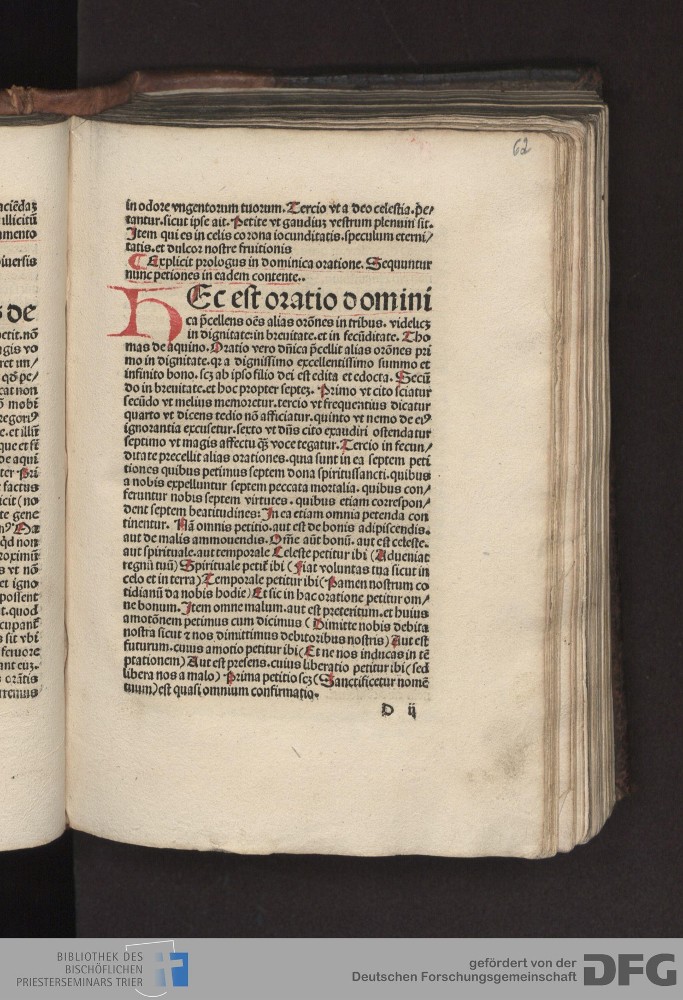 62
in odore vngentorum tuorum. Tercio vt a deo celestia. p̄e/
tantur. sicut ipse ait. Petite vt gaudiuꝫ vestrum plenum sit.
Item qui es in celis corona iocunditatis. speculum eterni/
tatis. et dulcor nostre fruitionis
Explicit prologus in dominica oratione. Sequuntur
nunc petiones in eadem contente..
HEc est oratio domini
ca p̄cellens oēs alias orōnes in tribus. videlicꝫ
in dignitate. in breuitate. et in fecūditate. Tho
mas de aquino. Oratio vero dn̄ica p̄cellit alias orōnes pri
mo in dignitate. qꝛ a dignissimo excellentissimo summo et
infinito bono. scꝫ ab ipso filio dei est edita et edocta. Secū
do in breuitate. et hoc propter septeꝫ. Primo vt cito sciatur
secūdo vt melius memoretur. tercio vt frequentius dicatur
quarto vt dicens tedio nō afficiatur. quinto vt nemo de eiꝰ
ignorantia excusetur. sexto vt dn̄s cito exaudiri ostendatur
septimo vt magis affectu qꝫ voce tegatur. Tercio in fecun/
ditate precellit alias orationes. quia sunt in ea septem peti
tiones quibus petimus septem dona spiritussancti. quibus
a nobis expelluntur septem peccata mortalia. quibus con/
feruntur nobis septem virtutes. quibus etiam correspon/
dent septem beatitudines: In ea etiam omnia petenda con
tinentur. Nā omnis petitio. aut est de bonis adipiscendis.
aut de malis ammouendis. Om̄e aūt bonū. aut est celeste.
aut spirituale. aut temporale Celeste petitur ibi (Adueniat
regnū tuū) Spirituale petit᷑ ibi (Fiat voluntas tua sicut in
celo et in terra) Temporale petitur ibi (Panem nostrum co
tidianū da nobis hodie) Et sic in hac oratione petitur om/
ne bonum. Item omne malum. aut est preteritum. et huius
amotōnem petimus cum dicimus (Dimitte nobis debita
nostra sicut ⁊ nos dimittimus debitoribus nostris) Aut est
futurum. cuius amotio petitur ibi (Et ne nos inducas in tē
ptationem) Aut est presens. cuius liberatio petitur ibi (sed
libera nos a malo) Prima petitio scꝫ (Sanctificetur nomē
tuum) est quasi omnium confirmatio.
D ij
BIBLIOTHEK DES
BISCHÖFLICHEN
PRIESTERSEMINARS TRIER
gefördert von der
Deutschen Forschungsgemeinschaft
DFG